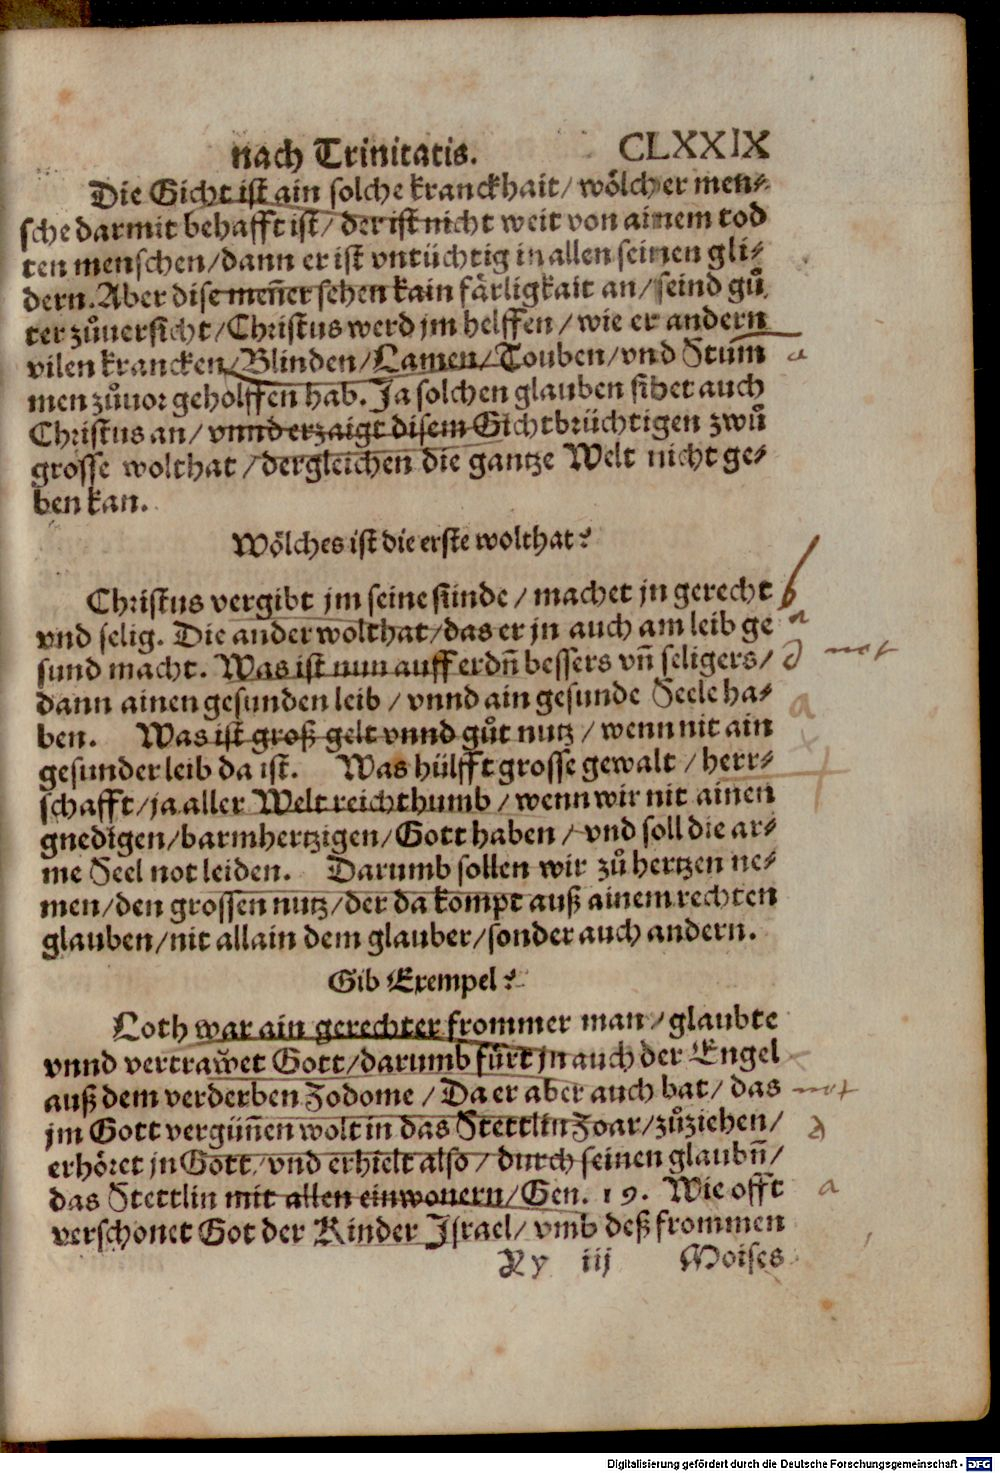 nach Trinitatis. CLXXIX
Die Gicht ist ain solche kranckhait/ wölcher men-
sche darmit behafft ist/ der ist nicht weit von ainem tod
ten menschen/dann er ist vntüchtig in allen seinen gli-
dern. Aber dise meñer sehen kain färligkait an/ seind gů
ter zůuersicht/Christus werd jm helffen/ wie er andern
vilen krancken/Blinden/Lamen/Touben/vnd Stum
men zůuor geholffen hab. Ja solchen glauben sihet auch
Christus an/ vnnd erzaigt disem Gichtbrüchtigen zwů
grosse wolthat /dergleichen die gantze Welt nicht ge-
ben kan.
Wölches ist die erste wolthat?
Christus vergibt jm seine sünde / machet jn gerecht
vnd selig. Die ander wolthat/das er jn auch am leib ge
sund macht. Was ist nun auff erdñ bessers vñ seligers/
dann ainen gesunden leib / vnnd ain gesunde Seele ha-
ben. Was ist groß gelt vnnd gůt nutz / wenn nit ain
gesunder leib da ist. Was hülfft grosse gewalt / herr-
schafft/ja aller Welt reichthumb / wenn wir nit ainen
gnedigen/barmhertzigen/Gott haben / vnd soll die ar-
me Seel not leiden. Darumb sollen wir zů hertzen ne-
men/den grossen nutz/der da kompt auß ainem rechten
glauben/nit allain dem glauber/sonder auch andern.
Gib Exempel?
Loth war ain gerechter frommer man/ glaubte
vnnd vertrawet Gott/darumb fůrt jn auch der Engel
auß dem verderben Zodome / Da er aber auch bat/ das
jm Gott vergüñen wolt in das Stettlin Zoar/zůziehen/
erhöret jn Gott/vnd erhielt also / durch seinen glaubñ/
das Stettlin mit allen einwonern/Gen. 19. Wie offt
verschonet Got der Kinder Israel/ vmb deß frommen
Yy iij Moises
a
a
not
a
not
a
Digitalisierung gefördert durch die Deutsche Forschungsgemeinschaft - DFG